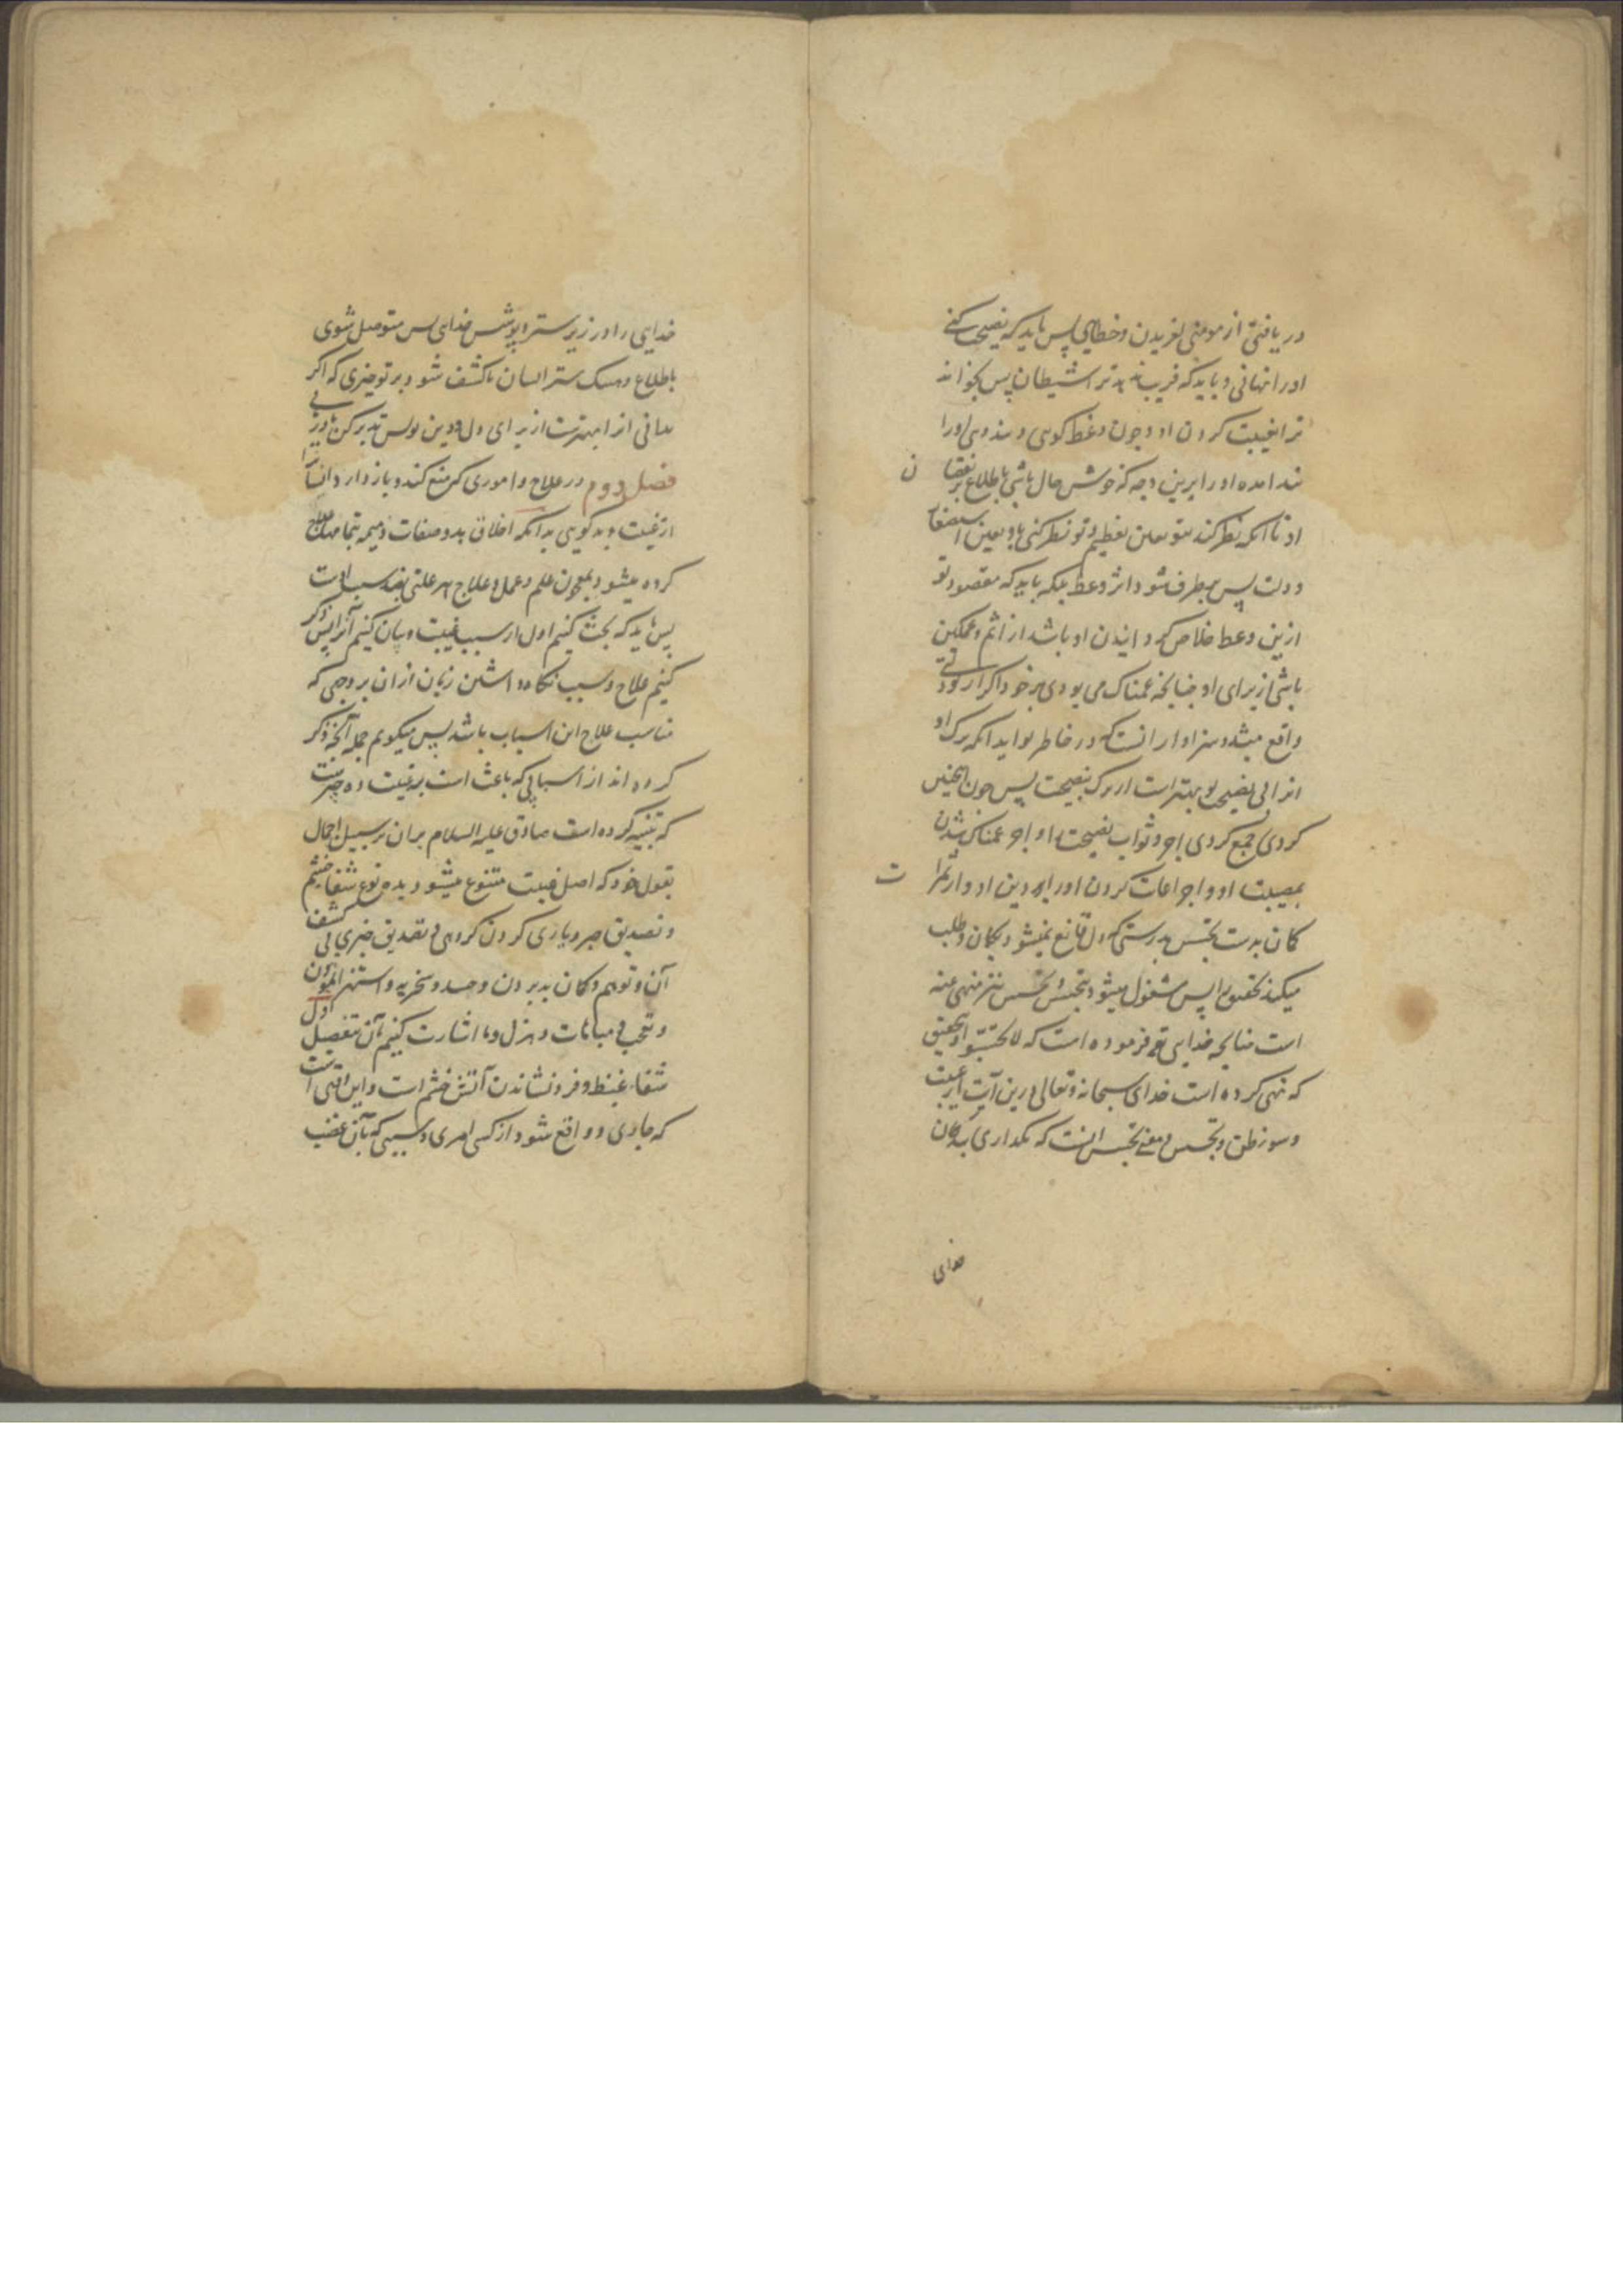 دریافتی از مومنی لغزیدن و خطایی پس باید که نصیحت کنی
او را نهانی و باید که فریب ندهد ترا شیطان پس بخواند
ترا بغیبت کردن او و چون وعظ کویی و پند دهی او را
پند مده او را برین وجه که خوش حال باشی باطلاع بر نقصان
او تا آنکه نظر کند بتو بعین تعظیم و تو نظر کنی باو بعین استصغار
و ذلت پس برطرف شود اثر وعظ بلکه باید که مقصود تو
ازین وعظ خلاص کردانیدن او باشد از اثم و غمکین
باشی از برای او چنانچه غمناک می بودی بر خود اگر از تو ذلتی
واقع میشد و سزاوار آنست که در خاطر تو آید آنکه ترک او
آنرا بی نصیحت تو بهتر است از ترک بنصیحت پس چون اینچنین
کردی جمع کردی اجر و ثواب نصیحت او و اجر غمناک شدن
بمصیبت او و اجر اعانت کردن او را بر دین او و از ثمرات
کمان بدست تجسس بدرستی که دل قانع نمیشود بکمان و طلب
میکند تحقیق را پس مشغول میشود بتجسس و تجسس نیز منهی عنه
است چنانچه خدای تع فرموده است که لا تجسسوا و بتحقیق
که نهی کرده است خدای سبحانه و تعالی درین آیت از غیبت
و سوء ظن و تجسس و معنی تجسس آنست که نکذاری بندکان
خدای
خدایی را در زیر ستر و پوشش خدای پس متوصل شوی
باطلاع و هتک ستر انسان تا کشف شود بر تو چیزی که اگر
ندانی آنرا بهترست از برای دل و دین تو پس تدبر کن تا در یابی
فصل دوم در علاج و اموری که منع کند و باز دارد انسان را
از غیبت و بد کویی بدانکه اخلاق بد و صفات ذمیمه بتمامها علاج
کرده میشود بمعجون علم و عمل و علاج هر علتی بضد سبب اوست
پس باید که بحث کنیم اول از سبب غیبت و بیان کنیم آنرا پس ذکر
کنیم علاج و سبب نکاه داشتن زبان از آن بر وجهی که
مناسب علاج این اسباب باشد پس میکوییم جمله آنچه ذکر
کرده اند از اسبابی که باعث است بر غیبت ده چیزست
که تنبیه کرده است صادق علیه السلام بران بر سبیل اجمال
بقول خود که اصل غیبت متنوع میشود بده نوع شفاء خشم
و تصدیق خبر و یاری کردن کروهی و تصدیق خبری بی کشف
آن و توهم و کمان بد بردن و حسد و سخریه و استهزا نمودن
و تعجب و مباهات و هزل و ما اشارت کنیم بآن بتفصیل اول
شفاء غیظ و فرو نشاندن آتش خشم است و این وقتی است
که جاری و واقع شود از کسی امری و سببی که بآن غضب